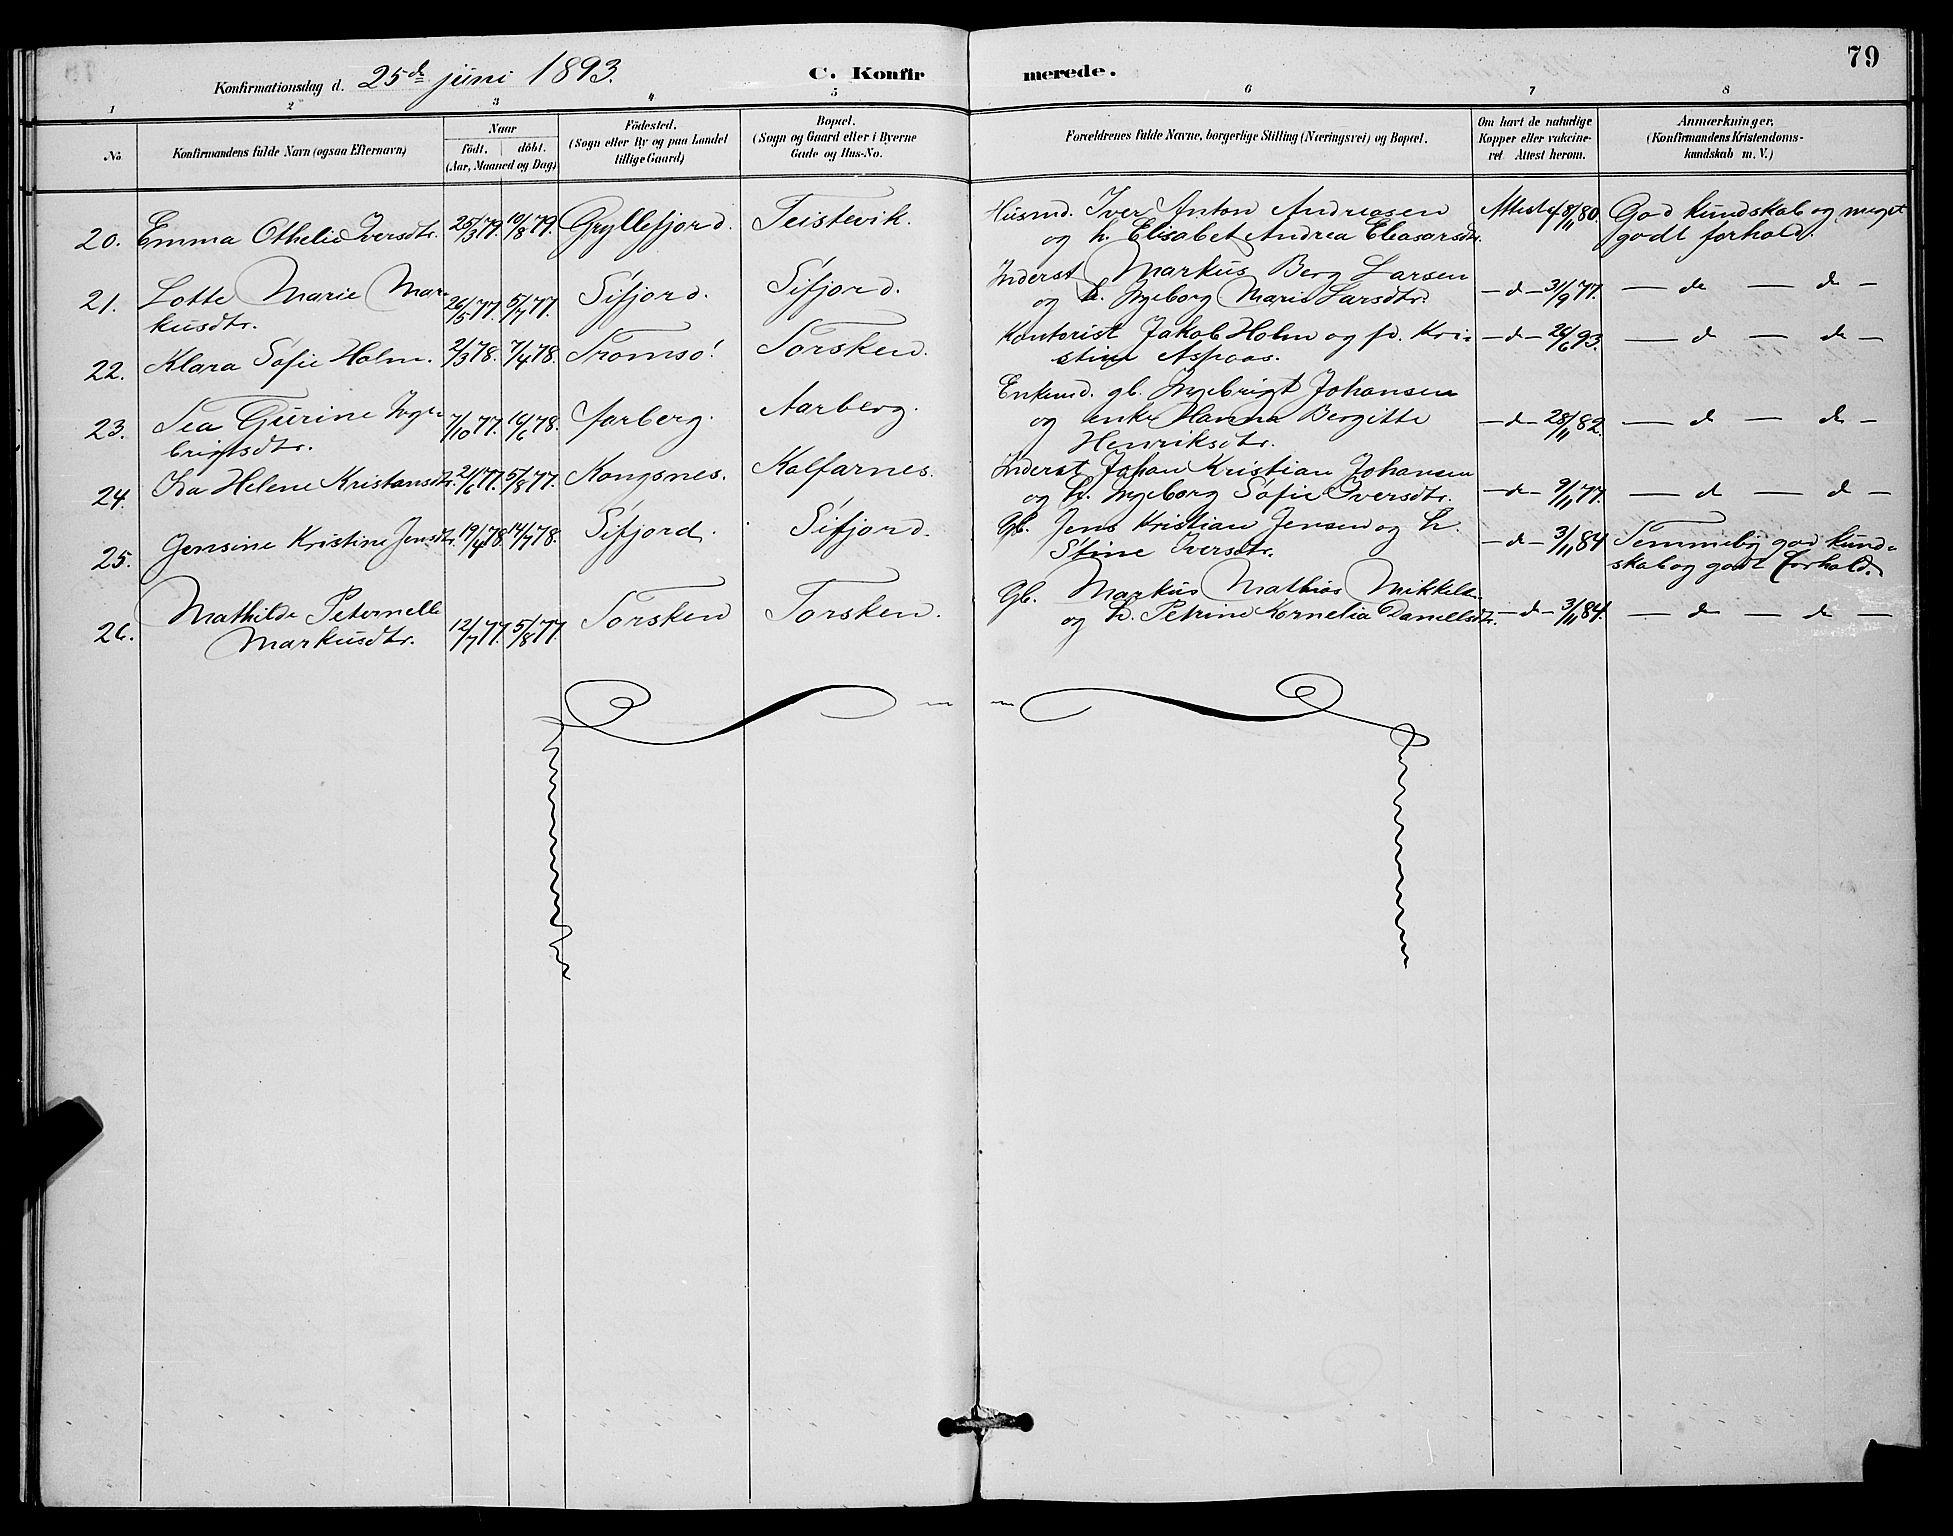 79
Konfirmationsdag d. 25de juni 1893. C. Konfirmerede.
1 2 3 4 5 6 7 8
No.
Konfirmandens fulde Navn (ogsaa Efternavn)
Naar
födt. döbt.
(Aar, Maaned og Dag)
Födested.
(Sogn eller By og paa Landet
tillige Gaard)
Bopæl.
(Sogn og Gaard eller i Byerne
Gade og Hus-No.
Forældrenes fulde Navne, borgerlige Stilling (Næringsvei) og Bopæl.
Om havt de naturlige
Kopper eller vakcine-
ret Attest herom.
Anmærkninger,
(Konfirmandens Kristendoms-
kundskab m. V.)
20. Emma Othelie Iversdtr. 25/3 79. 10/8 79. Gryllefjord. Teistevik. Husmd. Iver Anton Andreasen Attest 8/11 80. God kundskab og meget
og h. Elisabet Andrea Eleasarsdtr. godt forhold.
21. Lotte Marie Mar- 26/5 77. 5/7 77. Sifjord. Sifjord. Inderst Markus Berg Larsen
kusdtr. og h. Ingeborg Marie Larsdtr. — d — 31/9 77. — de — d —
22. Klara Sofie Holm. 2/3 78. 7/4 78. Tromsö. Torsken. Kontorist Jakob Holm og fr. Kri- — d — 26/6 93. — d — de —
stine Aspaas.
23. Tea Gurine Inge- 7/10 77. 16/6 78. Aarberg. Aarberg. Enkemd. gb. Ingebrigt Johansen
brigtsdtr. og enke Hanna Bergitte — d — 28/11 82. — d — d —
Henriksdtr.
24. Ida Helene Kristansdtr. 21/6 77. 5/8 77. Kongsnes. Kalfarnes. Inderst Johan Kristian Johansen
og h. Ingeborg Sofie Iversdtr. — d — 9/11 77. — d — d —
25. Jensine Kristine Jensdtr. 19/4 78. 14/7 78. Sifjord. Sifjord. Gb. Jens Kristian Jensen og h. — d — 3/11 84 Temmelig god kund-
Stine Iversdtr. skab og godt forhold.
26. Mathilde Peternelle 12/7 77. 5/8 77. Torsken Torsken. Gb. Markus Mathias Mikkels.
Markusdtr. og h. Petrine Kornelia Danielsdtr. — d — 3/11 84. — d — d —